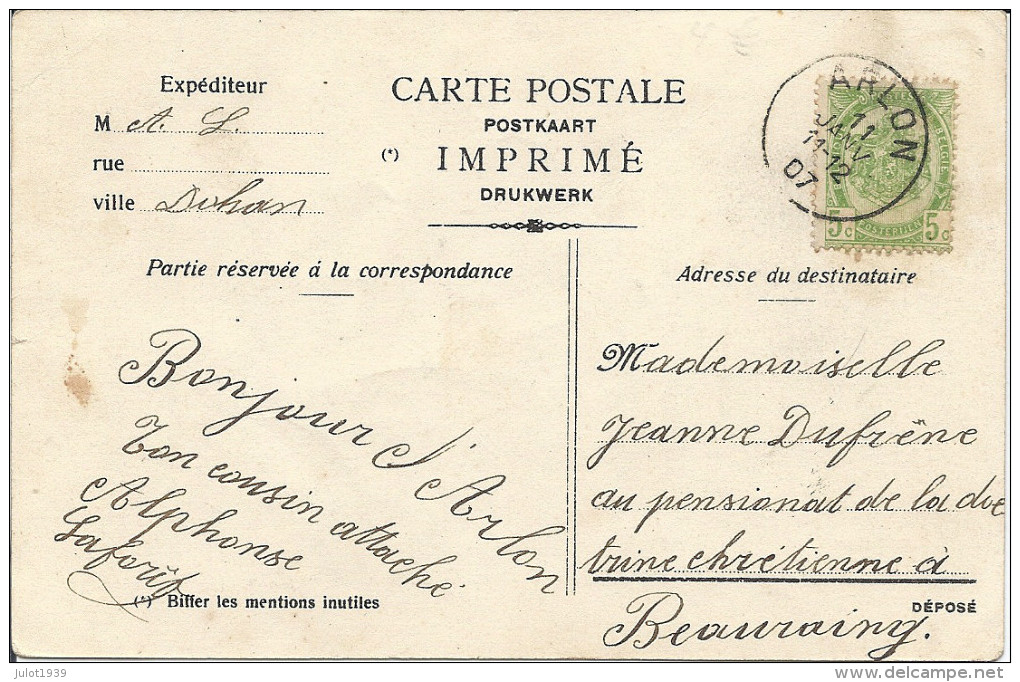 Expéditeur
M A. L.
rue
ville Dohan
CARTE POSTALE
POSTKAART
(*) IMPRIMÉ
DRUKWERK
ARLON
11
JANV
11-12
07
BELGIE
POSTERIJEN
5c 5c
Partie réservée á la correspondance
Bonjour d'Arlon
Ton cousin attaché
Alphonse
(*) Biffer les mentions inutiles
Adresse du destinataire
Mademoiselle
Jeanne Dufrène
au pensionat de la doc
trine chrétienne à
Beauraing.
DÉPOSÉ
julot1939
delcampe.net